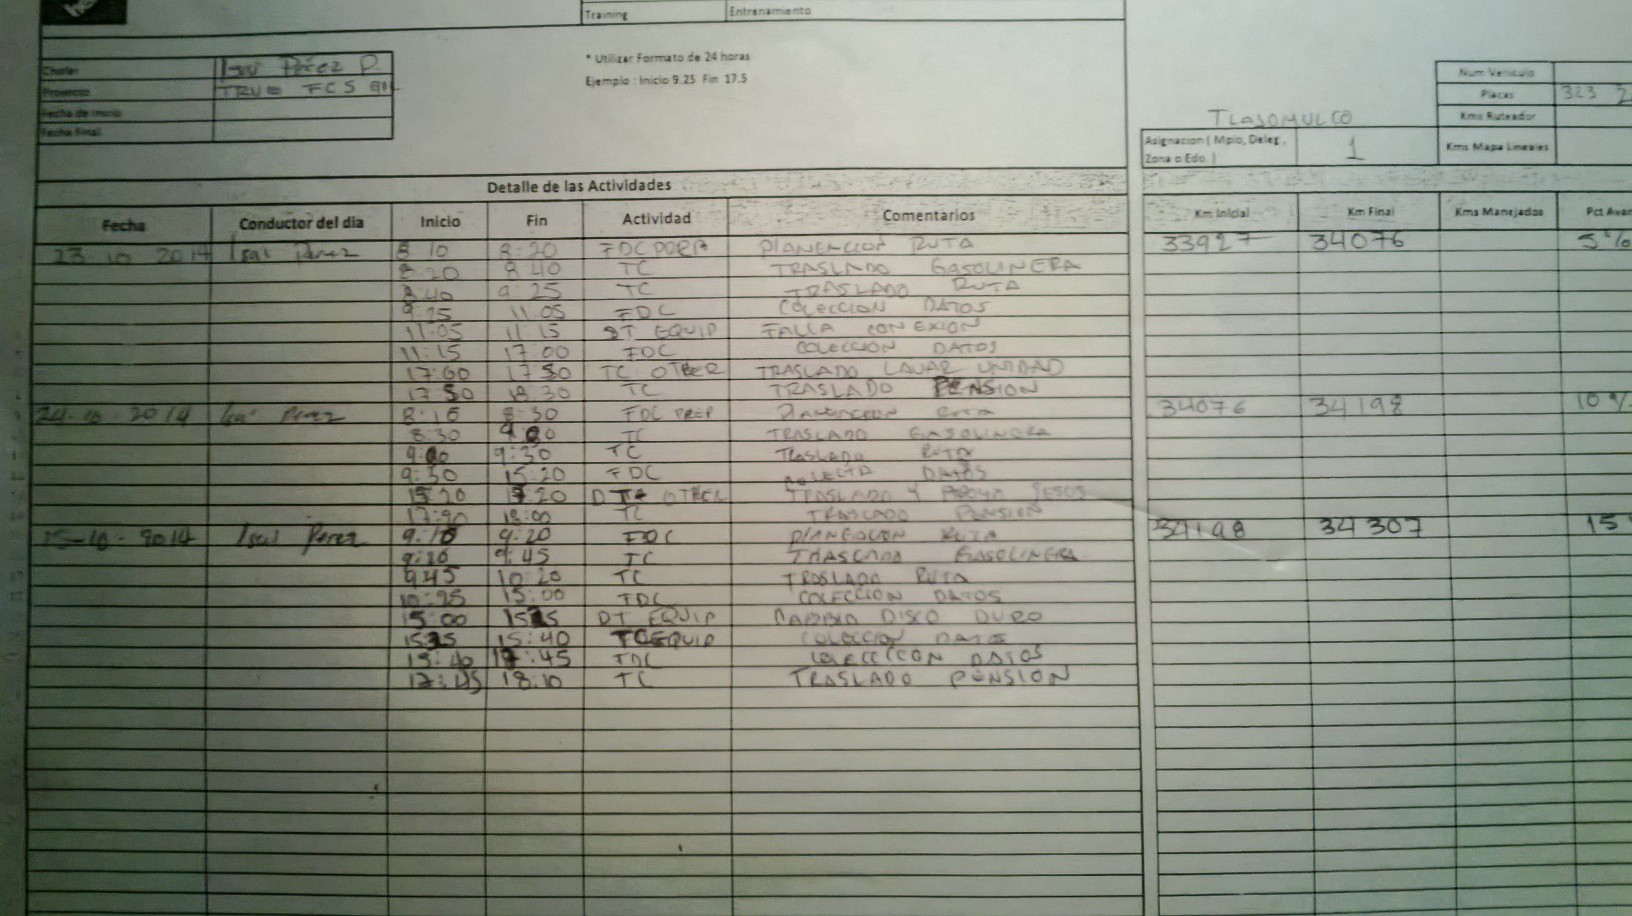 Training Entrenamiento
* Utilizar Formato de 24 horas
Ejemplo : Inicio 9.25 Fin 17.5
Chofer Isai Pérez P.
Proyecto TRUE FCS
Fecha de Inicio
Fecha Final
Num Vehiculo
Placas 323
Kms Ruteador
Kms Mapa Lineales
TLAJOMULCO
Asignacion ( Mpio, Deleg, Zona o Edo. ) 1
Detalle de las Actividades
Fecha Conductor del dia Inicio Fin Actividad Comentarios Km Inicial Km Final Kms Manejados Pct Avan
23 10 2014 Isai Perez 8 10 8:20 PLANEACION RUTA 33927 34076 5%
8:20 8:40 TC TRASLADO GASOLINERA
8:40 9:25 TC TRASLADO RUTA
9:25 11:05 FDC COLECCION DATOS
11:05 11:15 DT EQUIP FALLA CONEXION
11:15 17:00 FDC COLECCION DATOS
17:00 17:50 TC OTHER TRASLADO LAVAR UNIDAD
17:50 18:30 TC TRASLADO PENSION
24-10-2014 Isai Perez 8:10 8:30 FDC PREP PLANEACION RUTA 34076 34198 10%
8:30 9:00 TC TRASLADO GASOLINERA
9:00 9:30 TC TRASLADO RUTA
9:30 15:20 FDC COLECTA DATOS
15:20 17:20 OTHER TRASLADO Y APOYO JESUS
18:00 TC TRASLADO PENSION
25-10-2014 Isai Perez 9:10 9:20 FDC PLANEACION RUTA 34198 34307 15
9:20 9:45 TC TRASLADO GASOLINERA
9:45 10:20 TC TRASLADO RUTA
10:25 15:00 FDC COLECCION DATOS
15:00 DT EQUIP CAMBIO DISCO DURO
15:40 EQUIP COLECCION DATOS
15:40 17:45 FDC COLECCION DATOS
17:45 18:10 TC TRASLADO PENSION